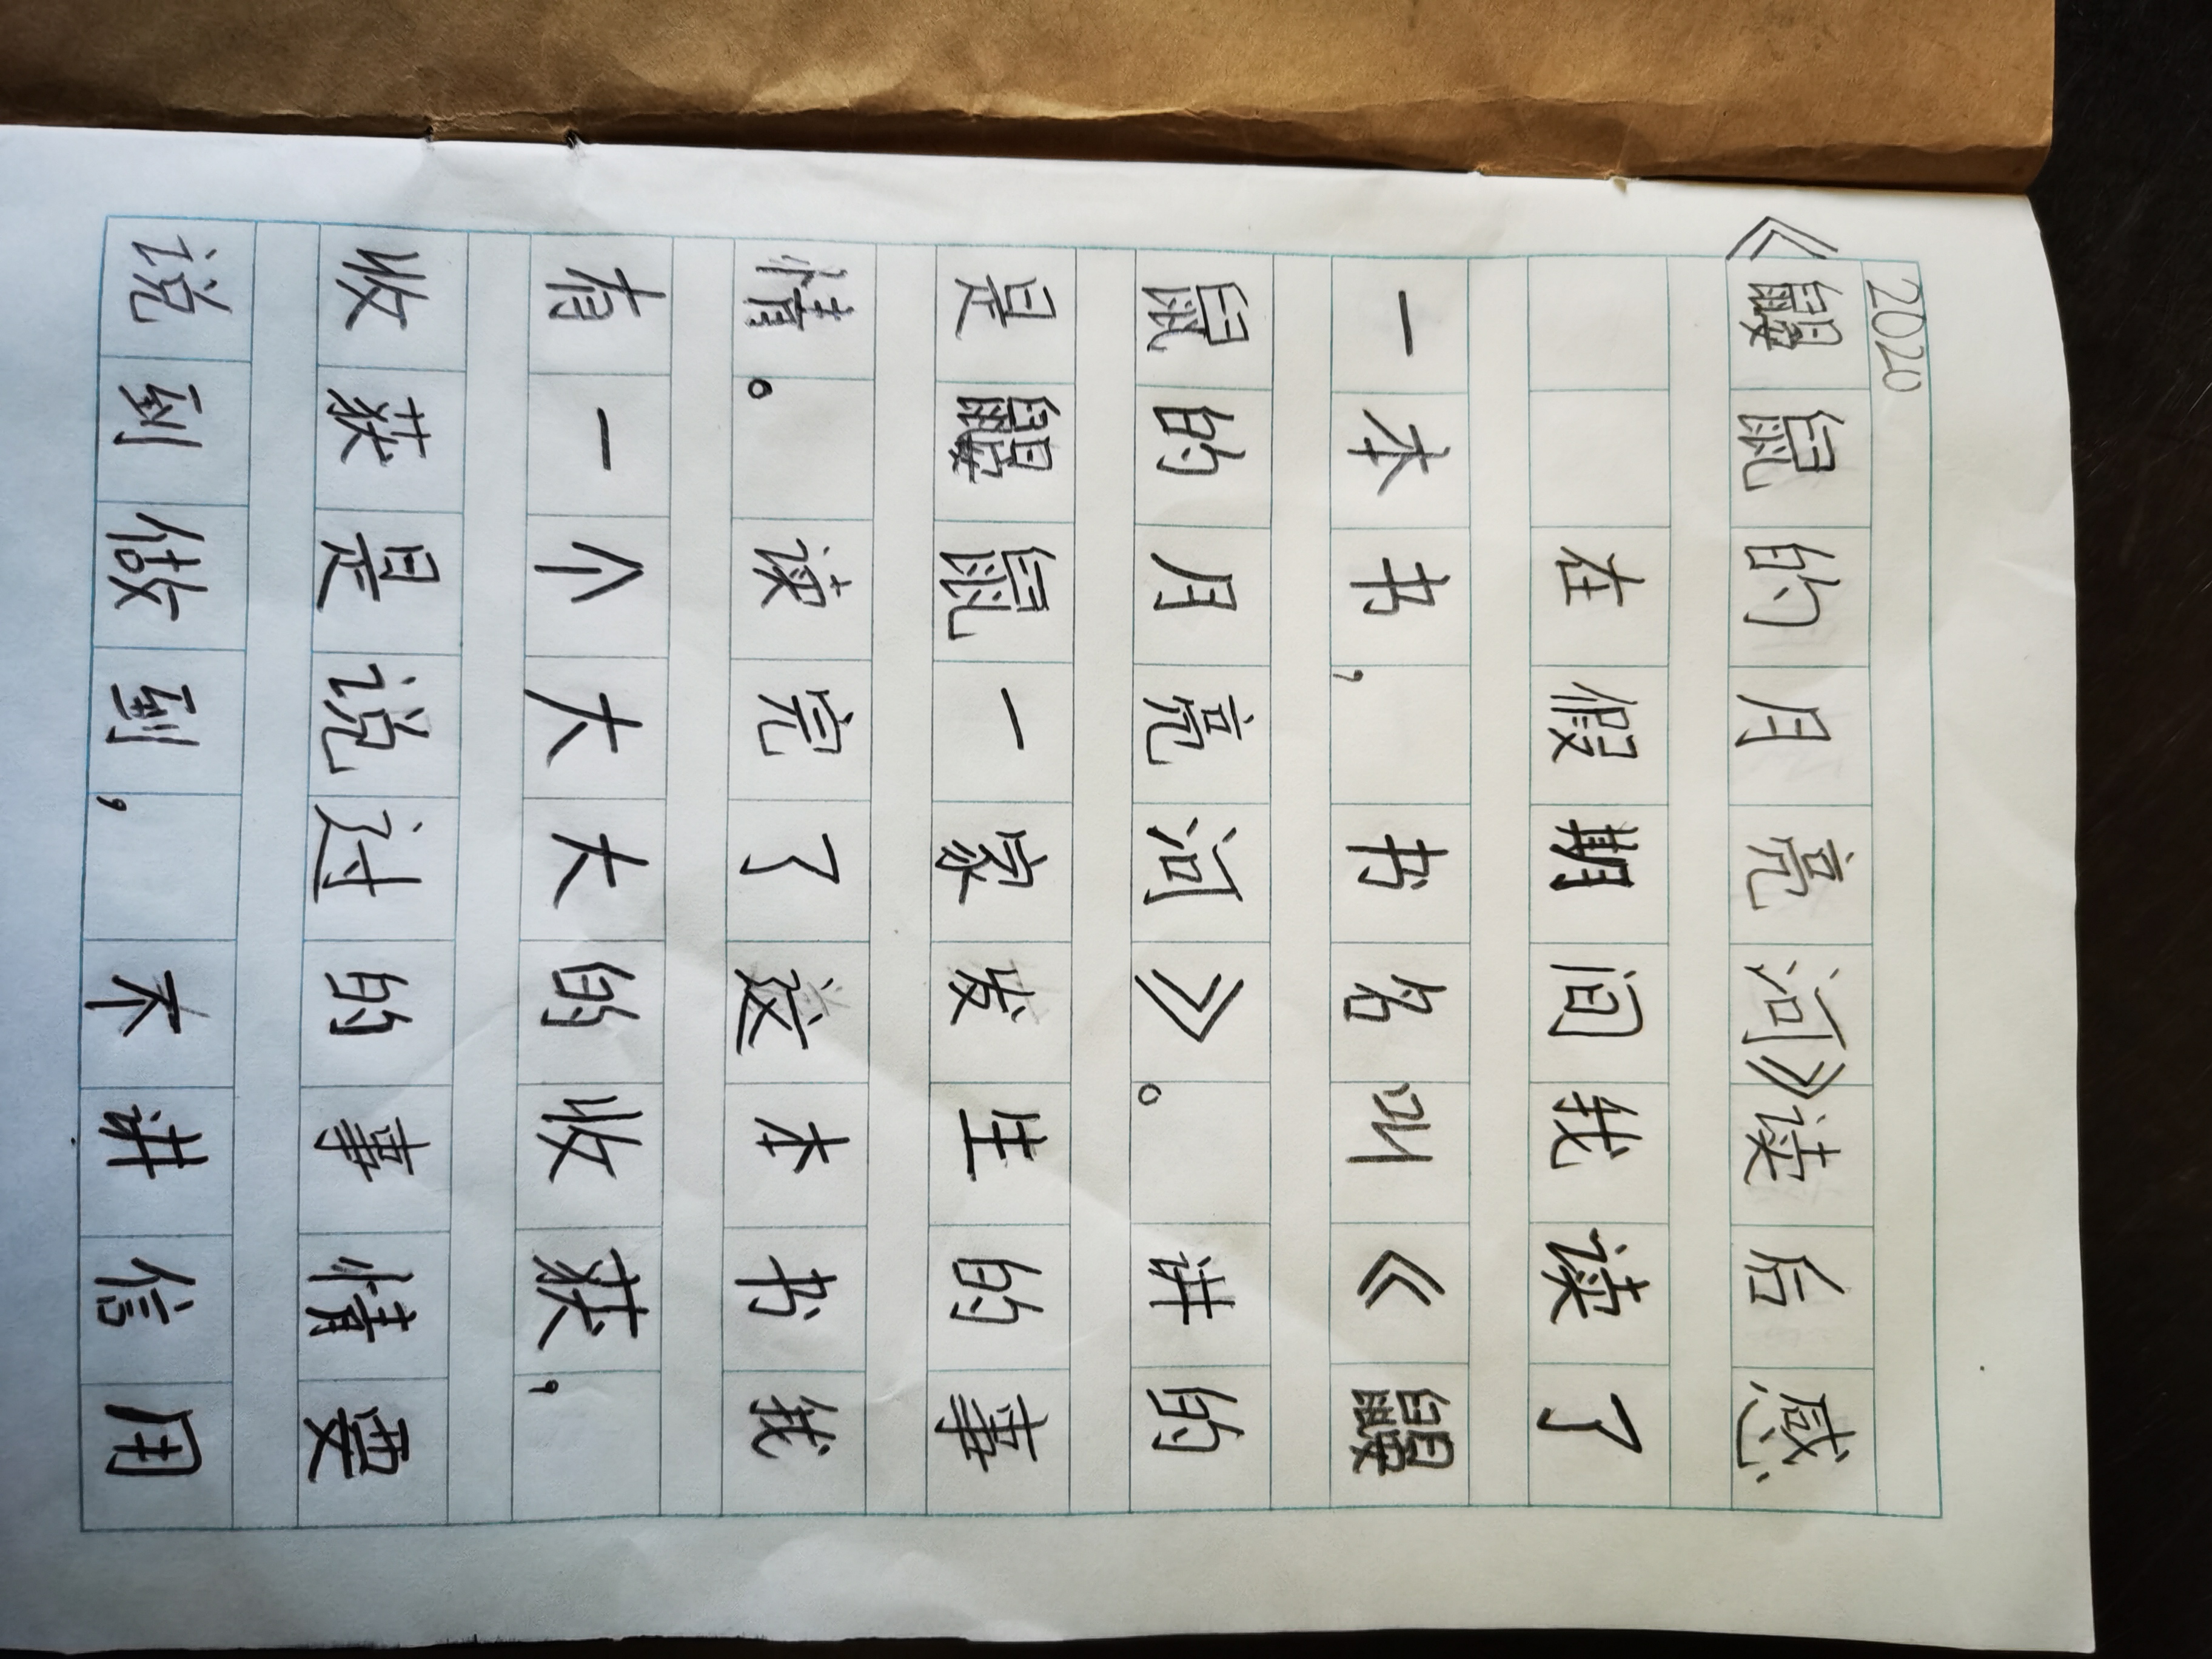 2020
《鼹鼠的月亮河》读后感
在假期间我读了
一本书，书名叫《鼹
鼠的月亮河》。讲的
是鼹鼠一家发生的事
情。读完了这本书我
有一个大大的收获，
收获是说过的事情要
说到做到，不讲信用